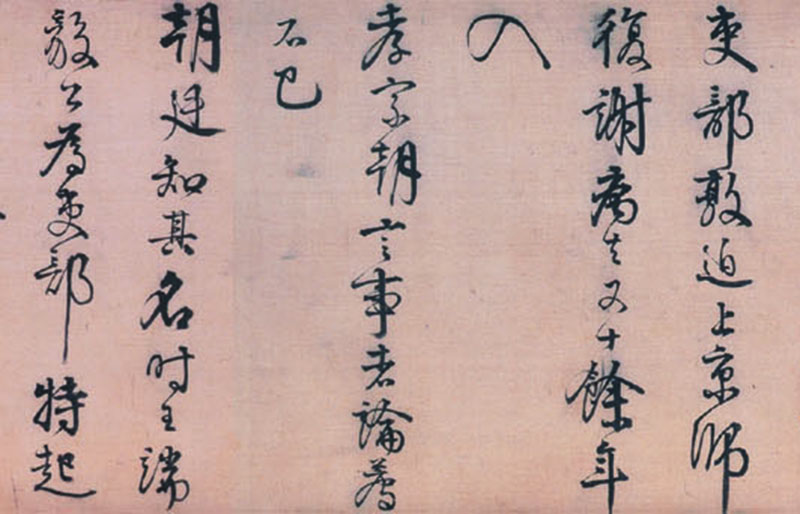 吏部敦迫上京師
復謝病去又十餘年
入
孝宗朝言事者論薦
不已
朝廷知其名時王端
毅公為吏部特起